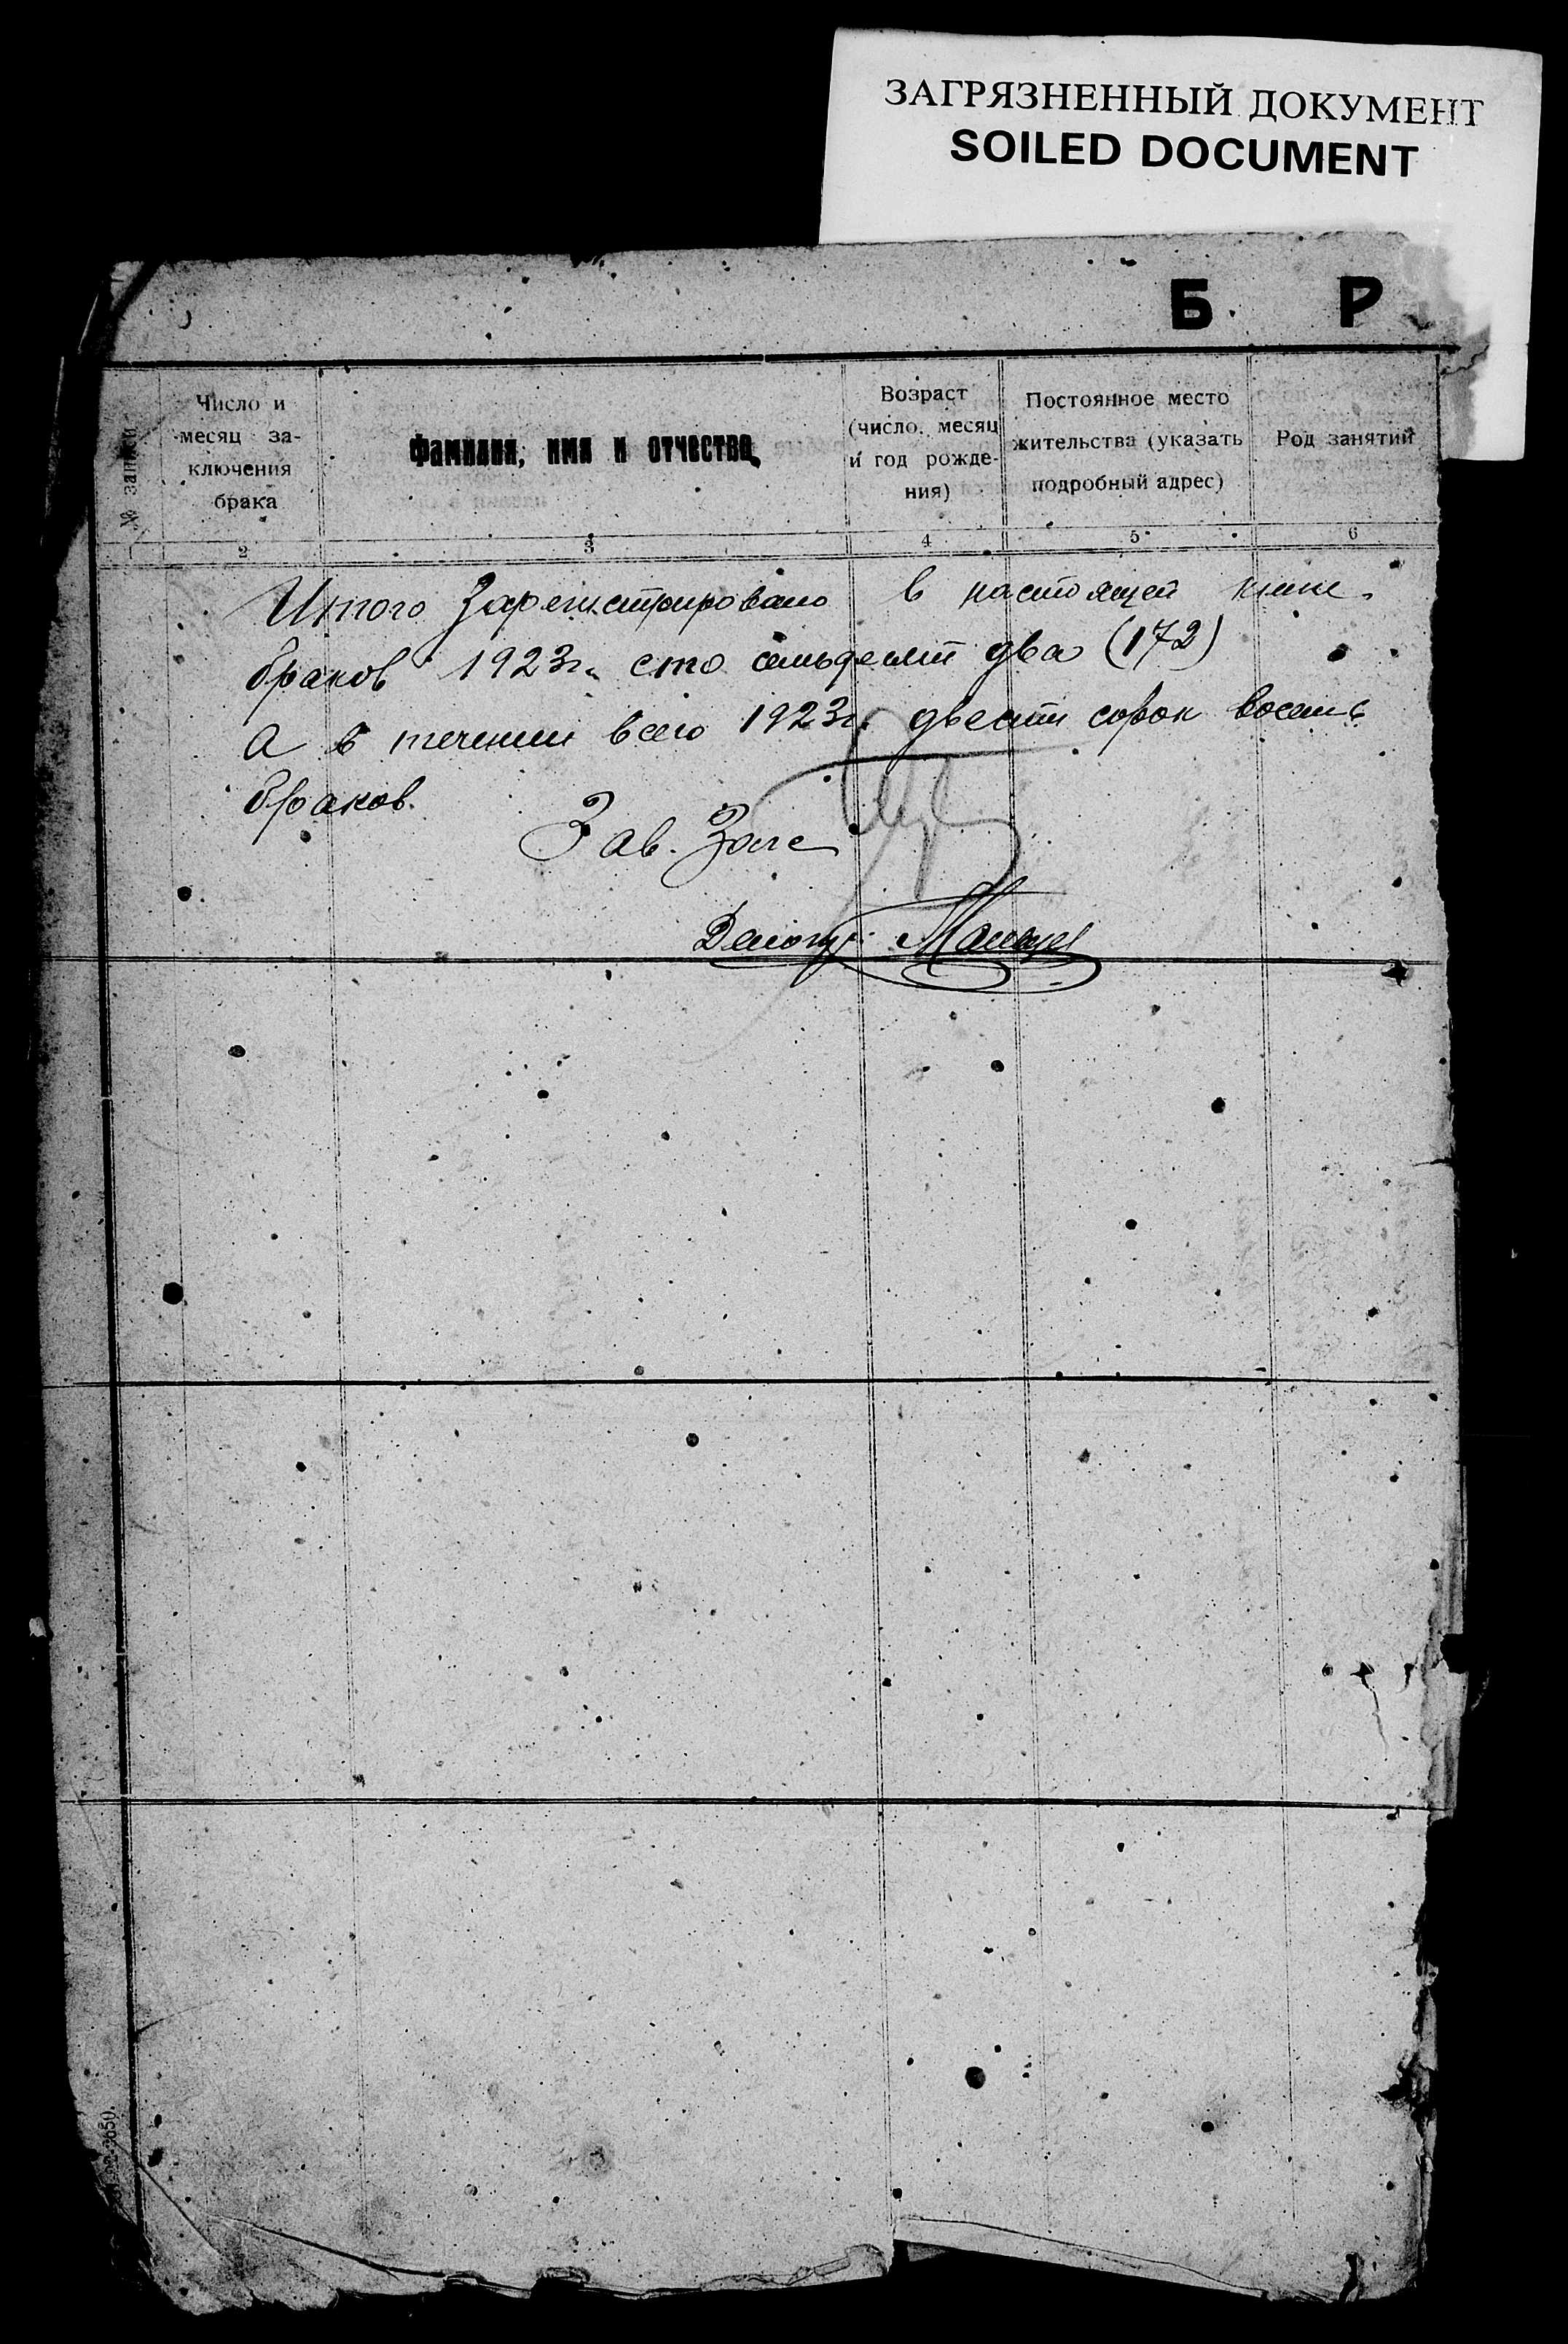 ЗАГРЯЗНЕННЫЙ ДОКУМЕНТ
SOILED DOCUMENT
Б Р
№ записи
Число и
месяц за-
ключения
брака
Фамилия, имя и отчество
Возраст
(число, месяц
и год рожде-
ния)
Постоянное место
жительства (указать
подробный адрес)
Род занятий
2 3 4 5 6
Итого Зарегистрировано в настоящей книге
браков 1923г. сто семьдесят два (172)
А в течении всего 1923г. двести сорок восемь
браков.
Зав. Загс
Делопр.